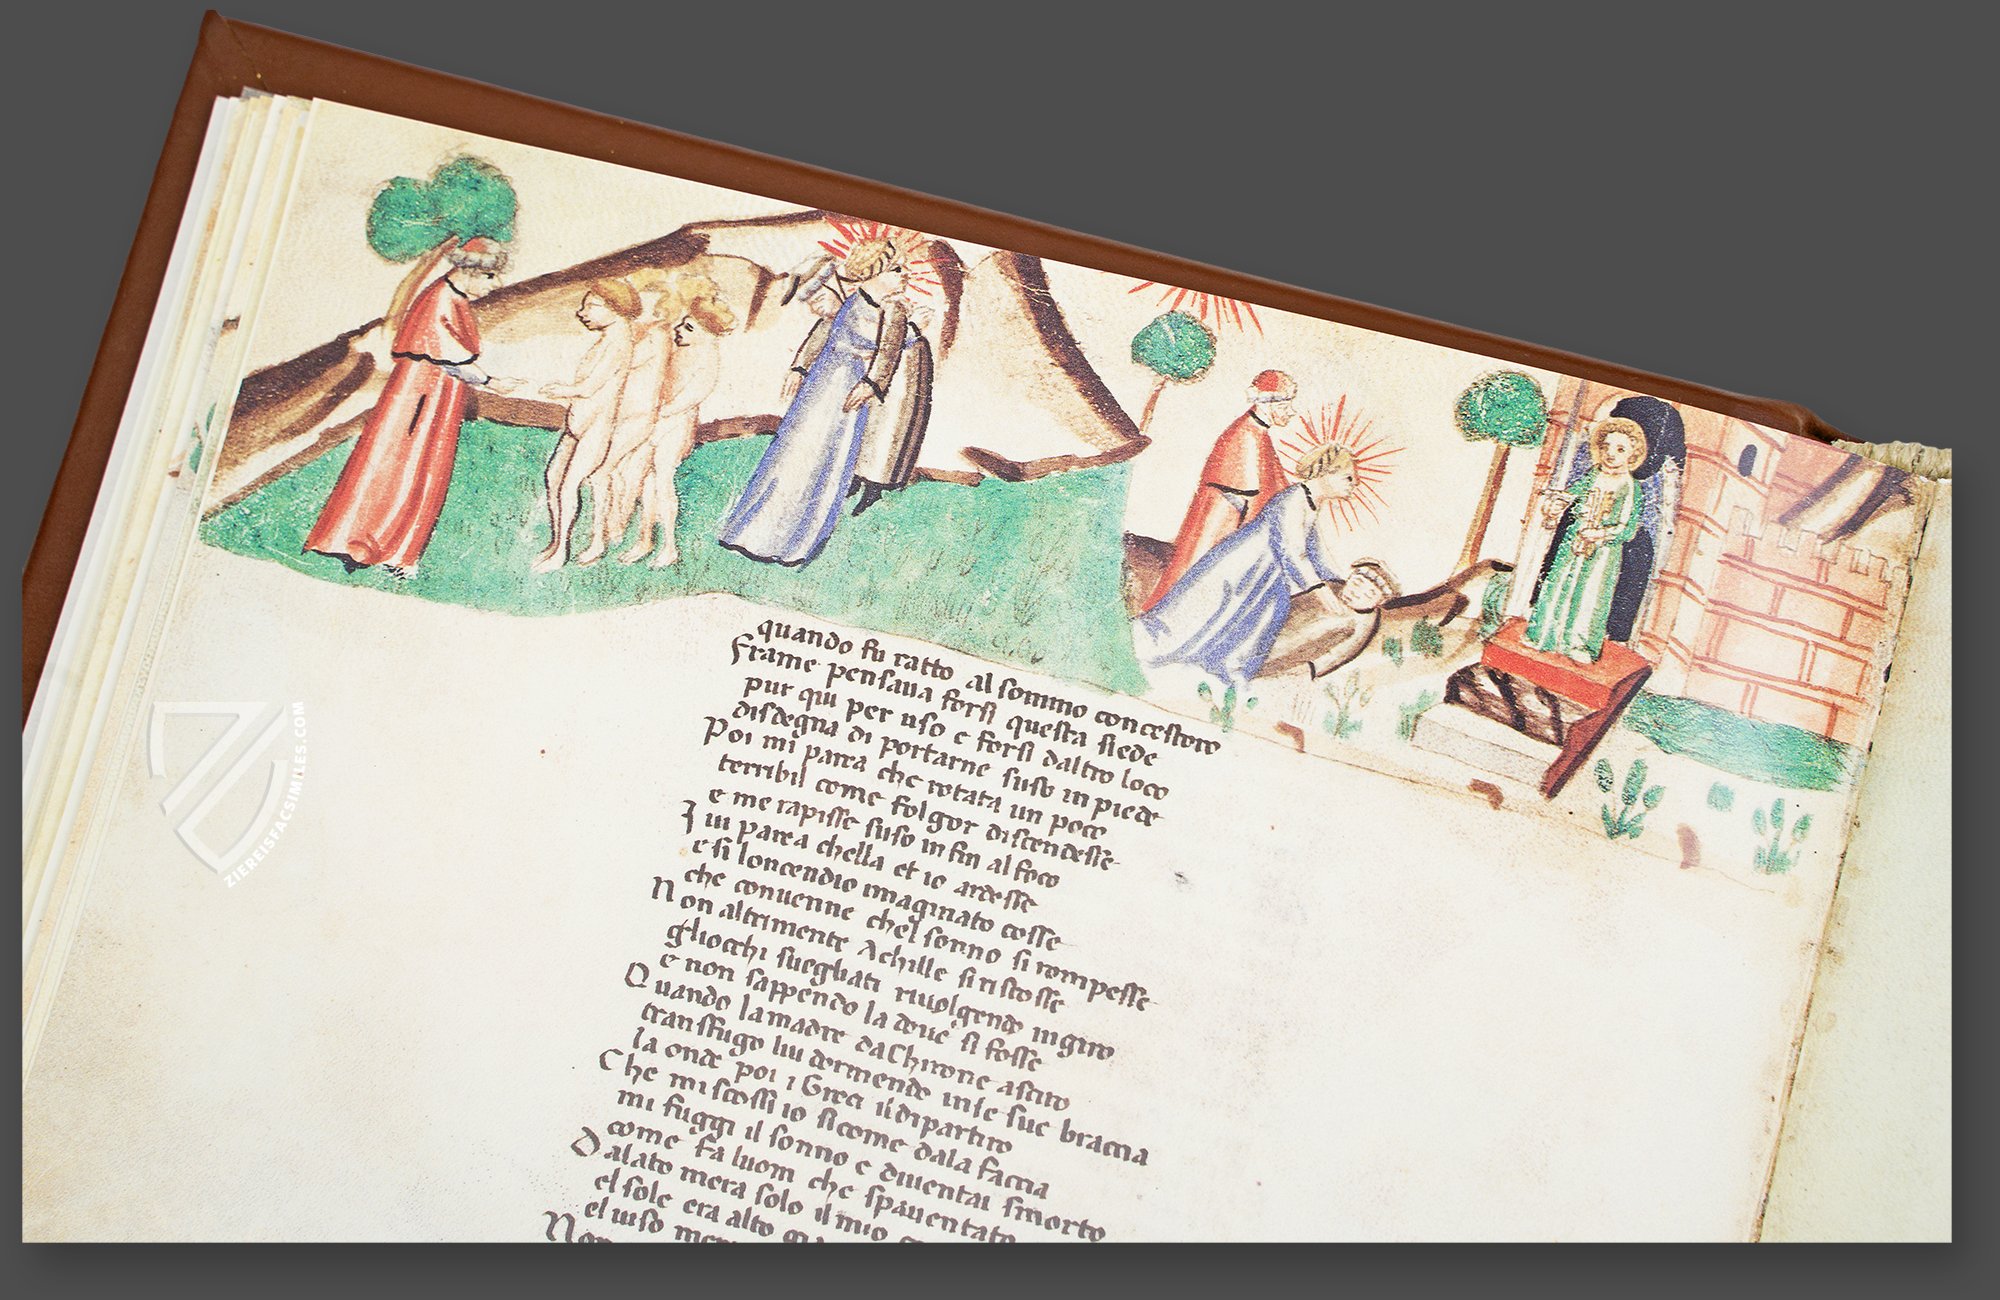 quando fu ratto al sommo concestoro
Frame pensaua forsi questa siede
pur qui per uso e forsi daltro loco
disdegna di portarne suso in piede
Poi mi parea che rotata un poco
terribil come folgor discendesse
e me rapisse suso in fin al foco
Iui parea chella et io ardesse
e si loncendio imaginato cosse
che conuenne chel sonno si rompesse
Non altrimente Achille si riscosse
gliocchi suegliati riuolgendo in giro
e non sappendo la doue si fosse
Quando la madre da Chirone a sciro
transfugo lui dormendo in le sue braccia
la onde poi i Greci il dipartiro
Che mi scossi io si come dala faccia
mi fuggi il sonno e diuentai smorto
come fa luom che spauentato
Dalato mera solo il mio
el sole era alto
el uiso
ZIEREISFACSIMILES.COM